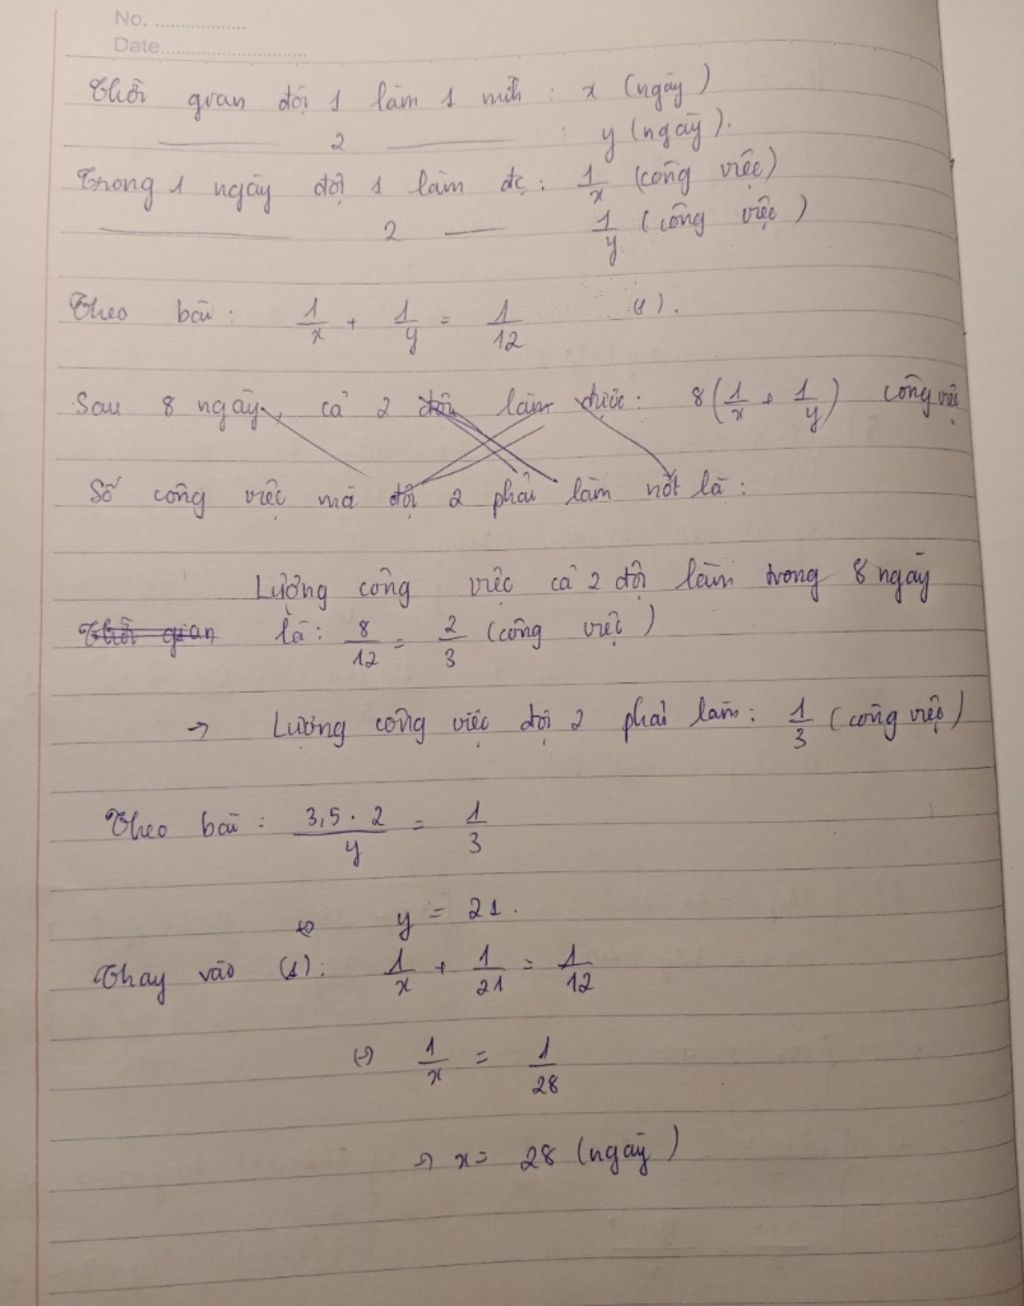 No. ..................
Date..............................
Thời gian đội 1 làm 1 mình : x (ngày)
——— 2 ——— : y (ngày).
Trong 1 ngày đội 1 làm đc : 1/x (công việc)
——— 2 —— 1/y (công việc)
Theo bài : 1/x + 1/y = 1/12 (1).
Sau 8 ngày, cả 2 đội làm được : 8(1/x + 1/y) công việc
Số công việc mà đội 2 phải làm nốt là :
Lượng công việc cả 2 đội làm trong 8 ngày
Thời gian là : 8/12 = 2/3 (công việc)
→ Lượng công việc đội 2 phải làm : 1/3 (công việc)
Theo bài : 3,5 . 2/y = 1/3
⇔ y = 21.
Thay vào (1) : 1/x + 1/21 = 1/12
⇔ 1/x = 1/28
→ x = 28 (ngày)